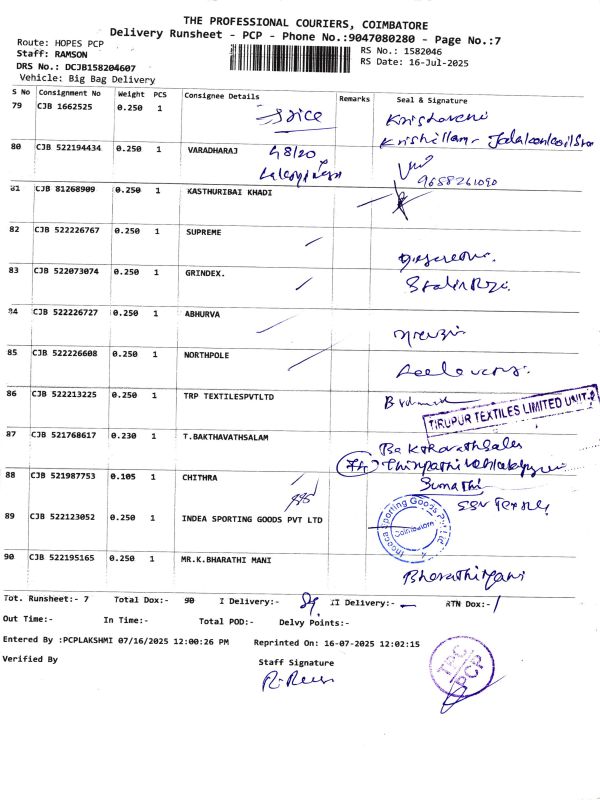 THE PROFESSIONAL COURIERS, COIMBATORE
Delivery Runsheet - PCP - Phone No.:9047080280 - Page No.:7
Route: HOPES PCP
Staff: RAMSON
DRS No.: DCJB158204607
Vehicle: Big Bag Delivery
RS No.: 1582046
RS Date: 16-Jul-2025
S No Consignment No Weight PCS Consignee Details Remarks Seal & Signature
79 CJB 1662525 0.250 1
80 CJB 522194434 0.250 1 VARADHARAJ
9658261090
81 CJB 81268909 0.250 1 KASTHURIBAI KHADI
82 CJB 522226767 0.250 1 SUPREME
83 CJB 522073074 0.250 1 GRINDEX.
84 CJB 522226727 0.250 1 ABHURVA
85 CJB 522226608 0.250 1 NORTHPOLE
86 CJB 522213225 0.250 1 TRP TEXTILESPVTLTD
TIRUPUR TEXTILES LIMITED UNIT-2
87 CJB 521768617 0.230 1 T.BAKTHAVATHSALAM
88 CJB 521987753 0.105 1 CHITHRA Sumathi
89 CJB 522123052 0.250 1 INDEA SPORTING GOODS PVT LTD
Sporting Goods Pvt Ltd
Coimbatore
90 CJB 522195165 0.250 1 MR.K.BHARATHI MANI
Bharathi Mani
Tot. Runsheet:- 7 Total Dox:- 90 I Delivery:- II Delivery:- RTN Dox:-
Out Time:- In Time:- Total POD:- Delvy Points:-
Entered By :PCPLAKSHMI 07/16/2025 12:00:26 PM Reprinted On: 16-07-2025 12:02:15
Verified By Staff Signature
TPC
PCP